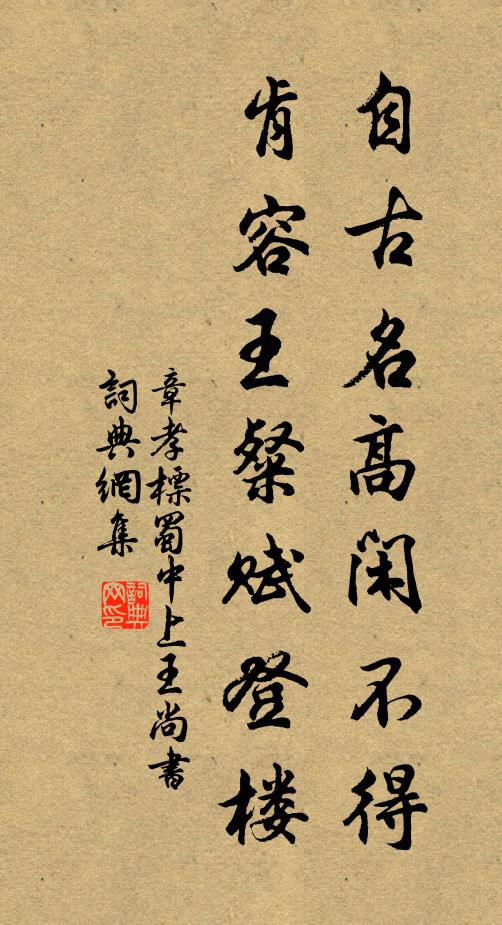 自古名高閑不得
肯容王粲賦登楼
章孝標蜀中上王尚書
詞典網集
詞典
网印